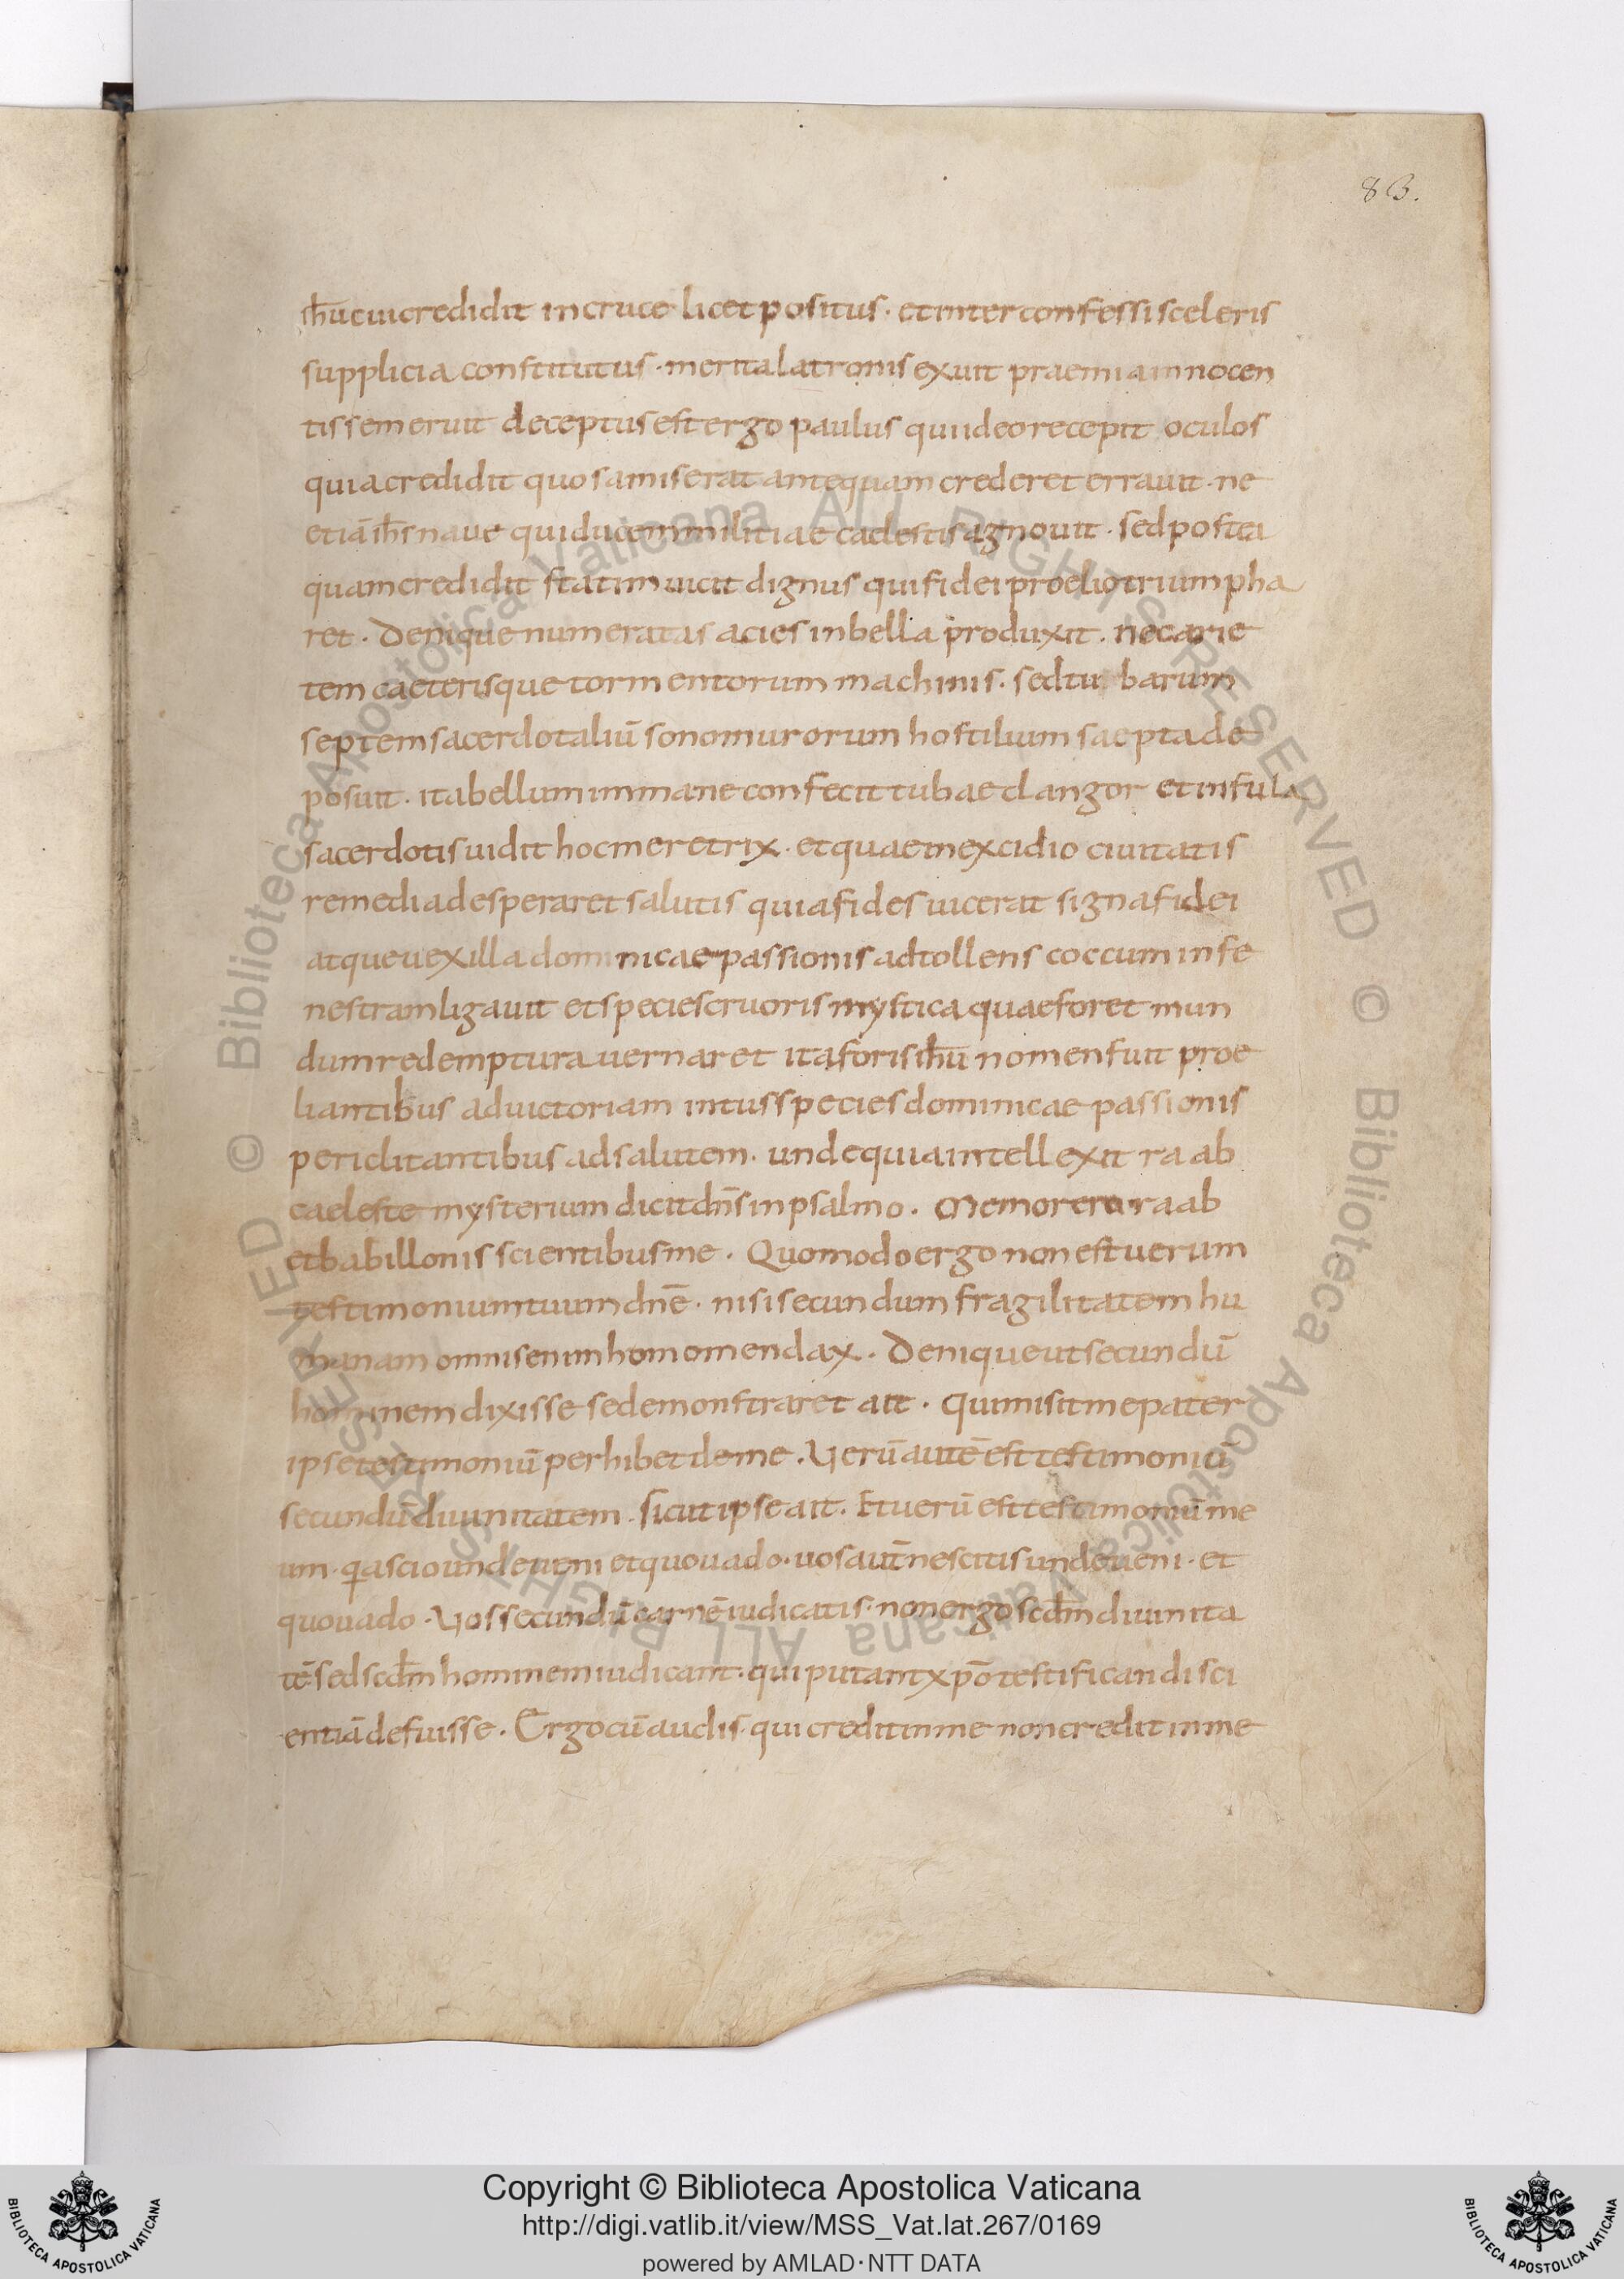 83.
ih̄u cui credidit in cruce licet positus · et inter confessi sceleris
supplicia constitutus · merita latronis exuit praemia innocen
tis semeruit deceptus est ergo paulus qui ideo recepit oculos
quia credidit quos amiserat antequam crederet errauit · ne
etiā ih̄s naue qui ducem militiae caelestis agnouit · sed postea
quam credidit statim uicit dignus qui fidei proelio triumpha
ret · Denique numeratas acies in bella produxit · nec arie
tem caeterisque tormentorum machinis · sed tubarum
septem sacerdotaliū sono murorum hostilium saepta de
posuit · ita bellum immane confecit tubae clangor et infula
sacerdotis uidit hoc meretrix · et quae in excidio ciuitatis
remedia desperaret salutis quia fides uicerat signa fidei
atque uexilla dominicae passionis adtollens coccum in fe
nestram ligauit et species cruoris mystica quae foret mun
dum redemptura uernaret ita foris ih̄u nomen fuit proe
liantibus ad uictoriam intus species dominicae passionis
periclitantibus ad salutem · unde quia intellexit raab
caeleste mysterium dicit dn̄s in psalmo · Memor ero raab
et babillonis scientibus me · Quomodo ergo non est uerum
testimonium tuum dn̄e · nisi secundum fragilitatem hu
manam omnis enim homo mendax · Denique ut secundū
hominem dixisse se demonstraret ait · Qui misit me pater
ipse testimoniū perhibet de me · Verū autē est testimoniū
secundū diuinitatem · sicut ipse ait · Et uerū est testimoniū me
um · qa scio unde ueni et quo uado · uos aut̄ nescitis unde ueni · et
quo uado · Vos secundū carnē iudicatis · non ergo scdm̄ diuinita
tē sed scdm̄ hominem iudicant · qui putant xp̄o testificandi sci
entiā defuisse · Ergo cū audis · qui credit in me non credit in me
© Biblioteca Apostolica Vaticana ALL RIGHTS RESERVED © Biblioteca Apostolica Vaticana ALL RIGHTS RESERVED
Copyright © Biblioteca Apostolica Vaticana
http://digi.vatlib.it/view/MSS_Vat.lat.267/0169
powered by AMLAD · NTT DATA
BIBLIOTECA APOSTOLICA VATICANA
BIBLIOTECA APOSTOLICA VATICANA